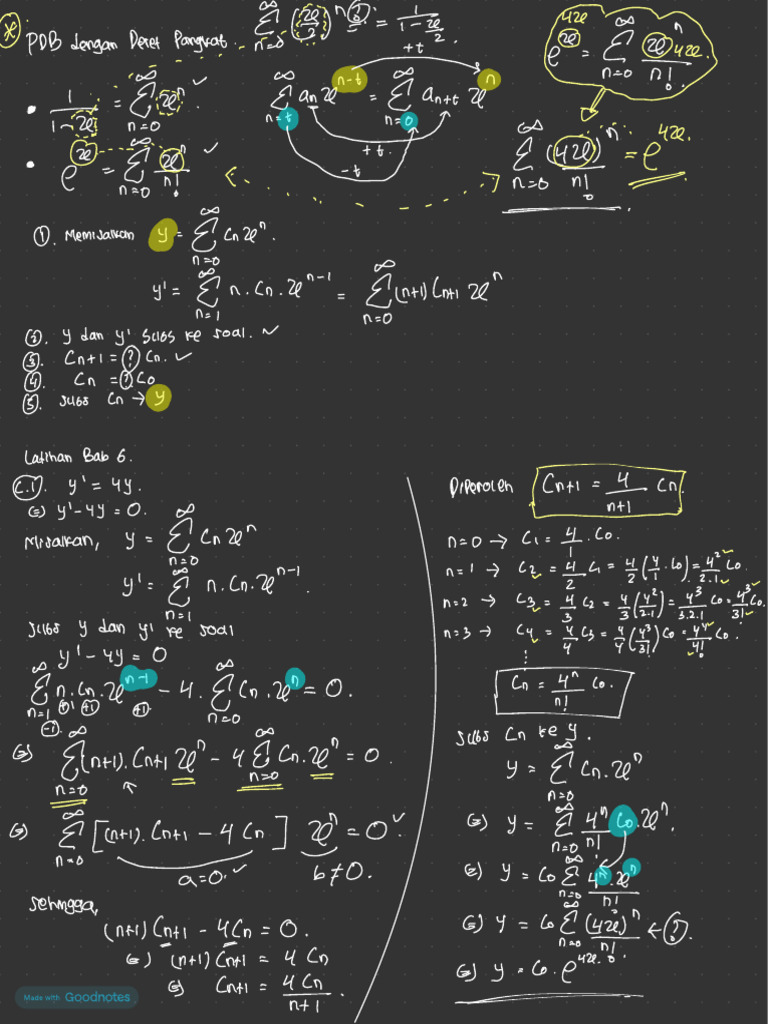 * PDB dengan Deret Pangkat. ∞ Σ n=0 (x/2)^n = 1/(1 - x/2).
• 1/(1-x) = ∞ Σ n=0 x^n. ✓
∞ Σ n=t a_n x^(n-t) = ∞ Σ n=0 a_(n+t) x^n
+t
+t.
-t
• e^x = ∞ Σ n=0 x^n/n! ✓
e^x = ∞ Σ n=0 x^n/n!
4x
4x.
∞ Σ n=0 (4x)^n/n! = e^(4x).
①. Memisalkan y = ∞ Σ n=0 Cn x^n.
y' = ∞ Σ n=1 n.Cn.x^(n-1) = ∞ Σ n=0 (n+1) Cn+1 x^n
②. y dan y' subs ke soal. ✓
③. Cn+1 = ? Cn. ✓
④. Cn = ? Co
⑤. subs Cn → y
Latihan Bab 6.
C.1. y' = 4y.
(=) y' - 4y = 0.
Misalkan, y = ∞ Σ n=0 Cn x^n
y' = ∞ Σ n=1 n.Cn.x^(n-1).
subs y dan y' ke soal
y' - 4y = 0
∞ Σ n=1 n.Cn.x^(n-1) - 4. ∞ Σ n=0 Cn.x^n = 0.
-1 +1 +1 +1
(=) ∞ Σ n=0 (n+1).Cn+1 x^n - 4 ∞ Σ n=0 Cn.x^n = 0.
(=) ∞ Σ n=0 [(n+1).Cn+1 - 4 Cn] x^n = 0 ✓.
a=0. ✓ b≠0.
Sehingga,
(n+1) Cn+1 - 4Cn = 0.
(=) (n+1) Cn+1 = 4 Cn
(=) Cn+1 = 4 Cn/(n+1).
Diperoleh Cn+1 = 4/(n+1) Cn.
n=0 → C1 = 4/1 . Co.
n=1 → C2 = 4/2 C1 = 4/2 (4/1 . Co) = 4^2/2.1 Co.
n=2 → C3 = 4/3 C2 = 4/3 (4^2/2.1) = 4^3/3.2.1 Co = 4^3/3! Co.
n=3 → C4 = 4/4 C3 = 4/4 (4^3/3!) Co = 4^4/4! Co.
⋮
Cn = 4^n/n! Co.
subs Cn ke y.
y = ∞ Σ n=0 Cn.x^n
(=) y = ∞ Σ n=0 4^n/n! Co.x^n.
(=) y = Co ∞ Σ n=0 4^n.x^n/n!
(=) y = Co ∞ Σ n=0 (4x)^n/n! ← ?
(=) y = Co. e^(4x).
Made with Goodnotes